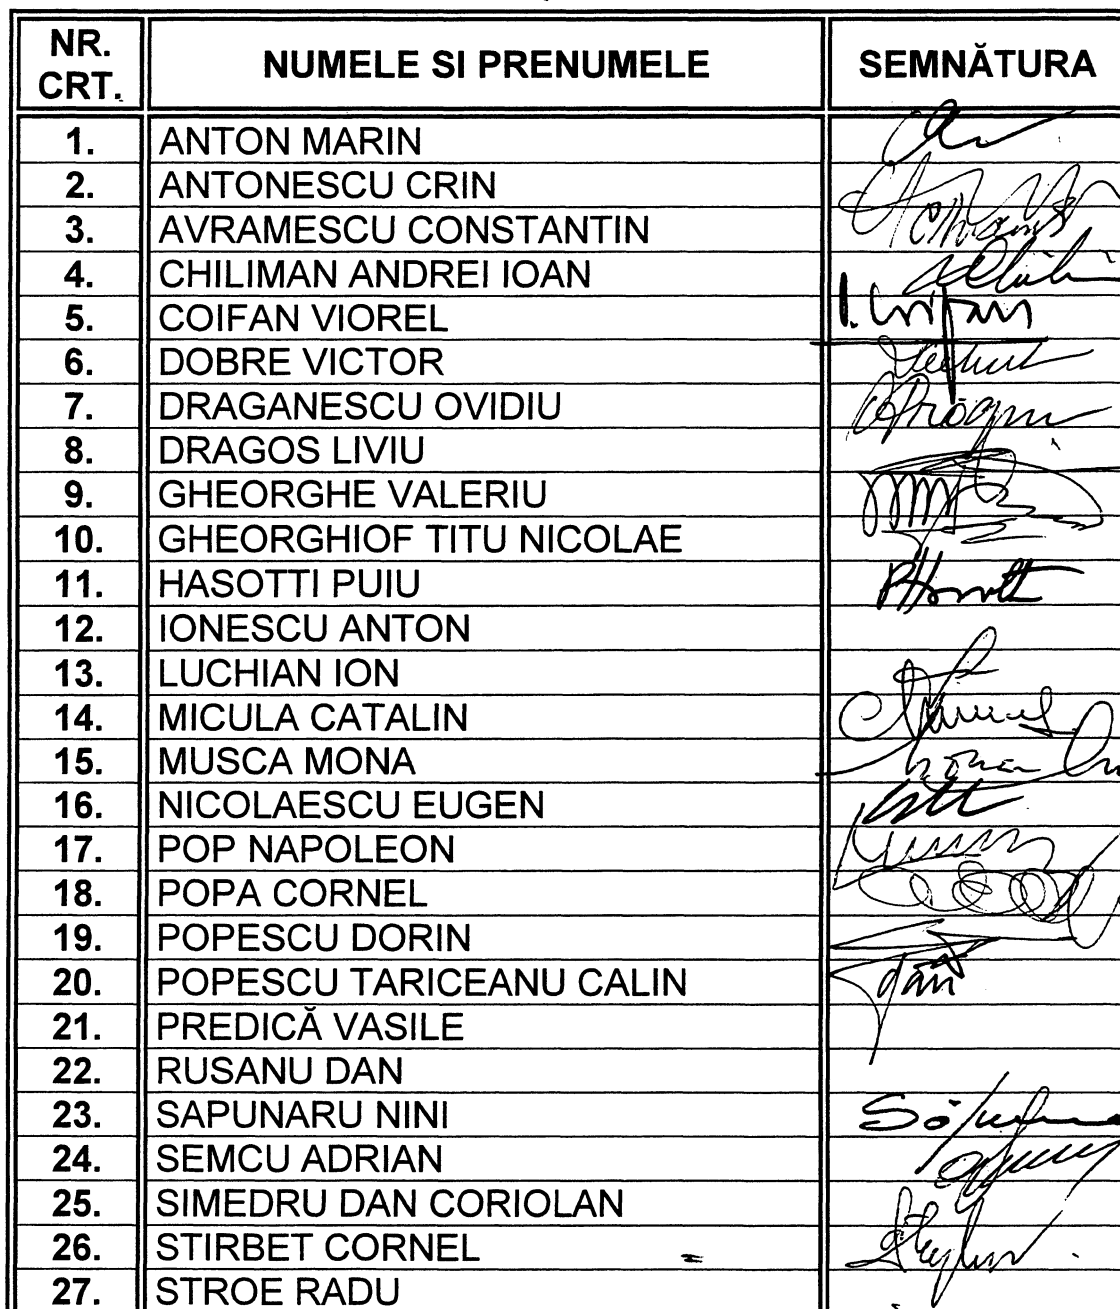 NR. CRT. NUMELE SI PRENUMELE SEMNĂTURA
1. ANTON MARIN
2. ANTONESCU CRIN
3. AVRAMESCU CONSTANTIN
4. CHILIMAN ANDREI IOAN
5. COIFAN VIOREL
6. DOBRE VICTOR
7. DRAGANESCU OVIDIU
8. DRAGOS LIVIU
9. GHEORGHE VALERIU
10. GHEORGHIOF TITU NICOLAE
11. HASOTTI PUIU
12. IONESCU ANTON
13. LUCHIAN ION
14. MICULA CATALIN
15. MUSCA MONA
16. NICOLAESCU EUGEN
17. POP NAPOLEON
18. POPA CORNEL
19. POPESCU DORIN
20. POPESCU TARICEANU CALIN
21. PREDICĂ VASILE
22. RUSANU DAN
23. SAPUNARU NINI
24. SEMCU ADRIAN
25. SIMEDRU DAN CORIOLAN
26. STIRBET CORNEL
27. STROE RADU